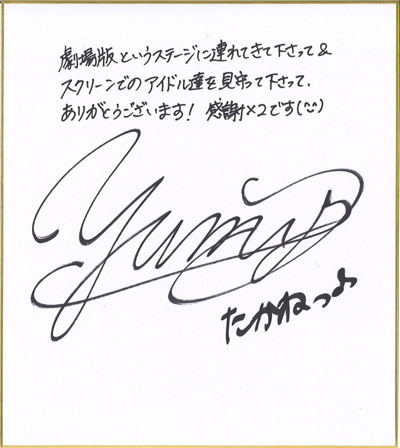 劇場版というステージに連れてきて下さって&
スクリーンでのアイドル達を見守って下さって、
ありがとうございます! 感謝×2です(¨)
yumi
たかねっち